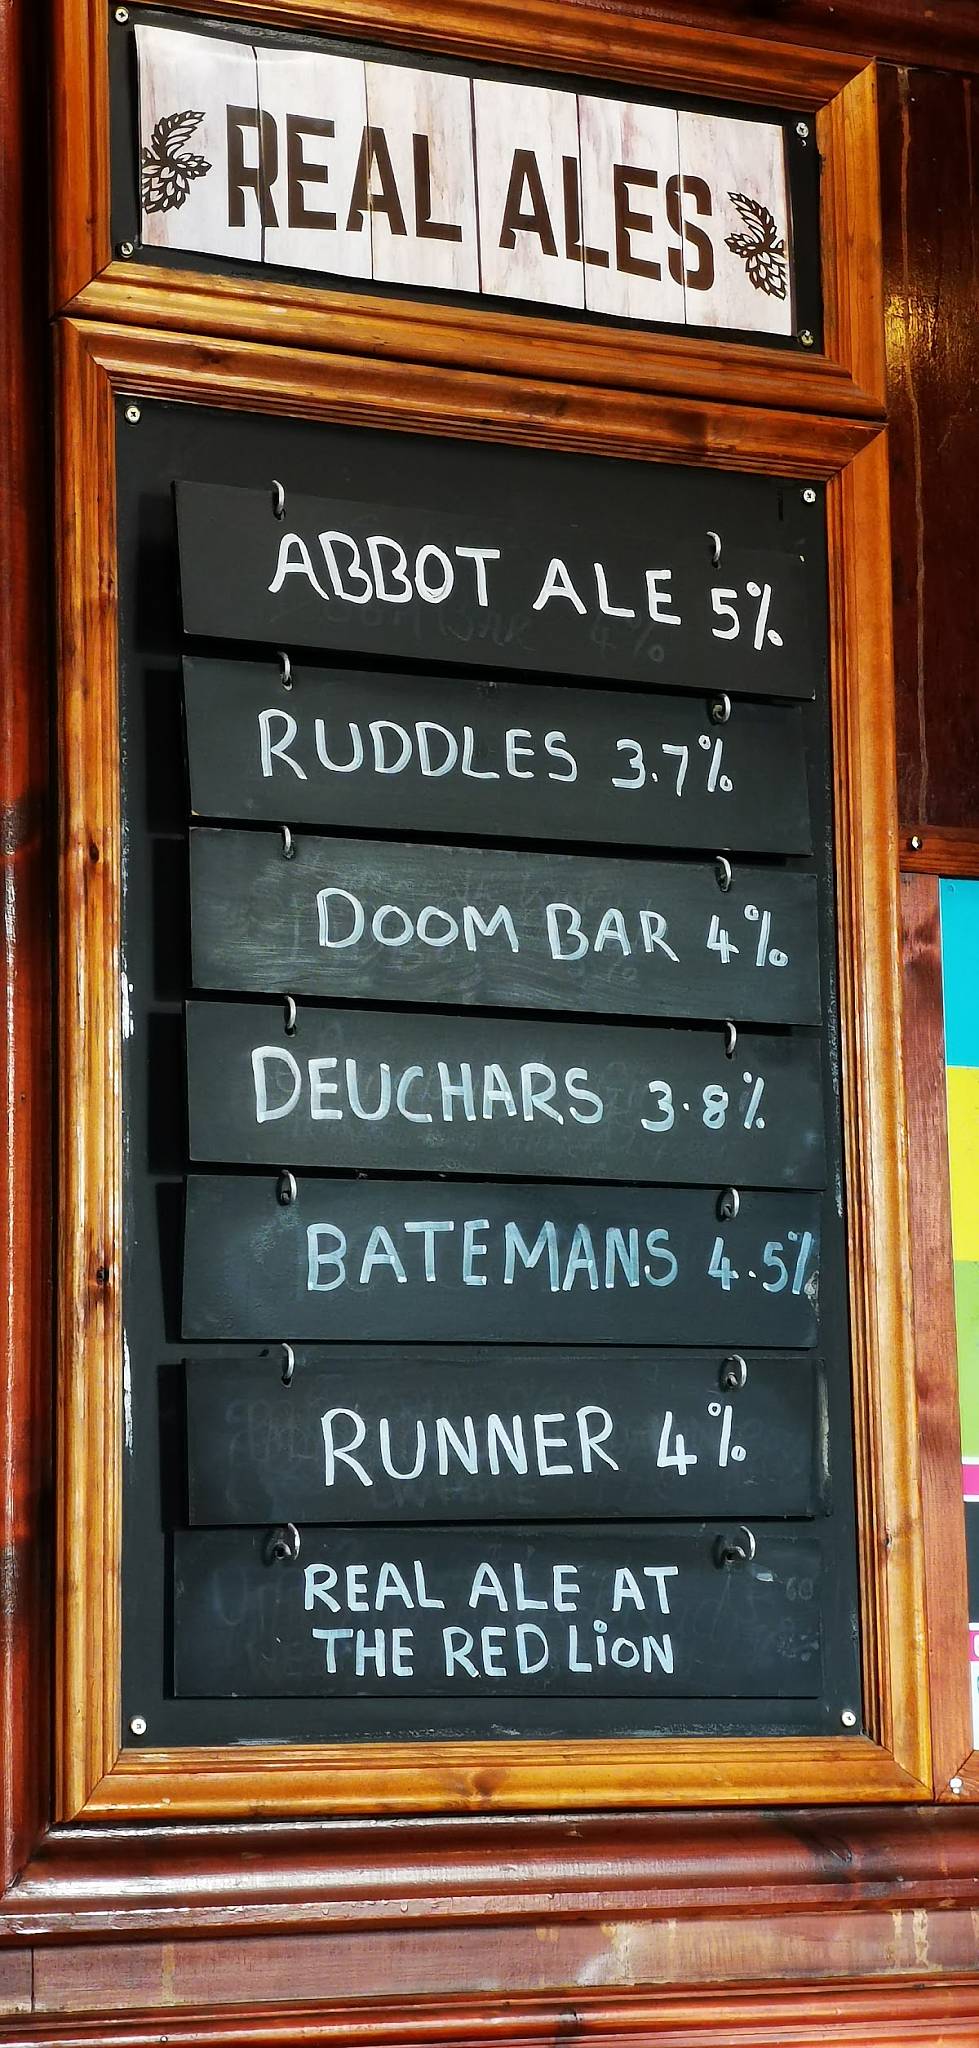 REAL ALES
ABBOT ALE 5%
RUDDLES 3.7%
DOOM BAR 4%
DEUCHARS 3.8%
BATEMANS 4.5%
RUNNER 4%
REAL ALE AT
THE RED LiON